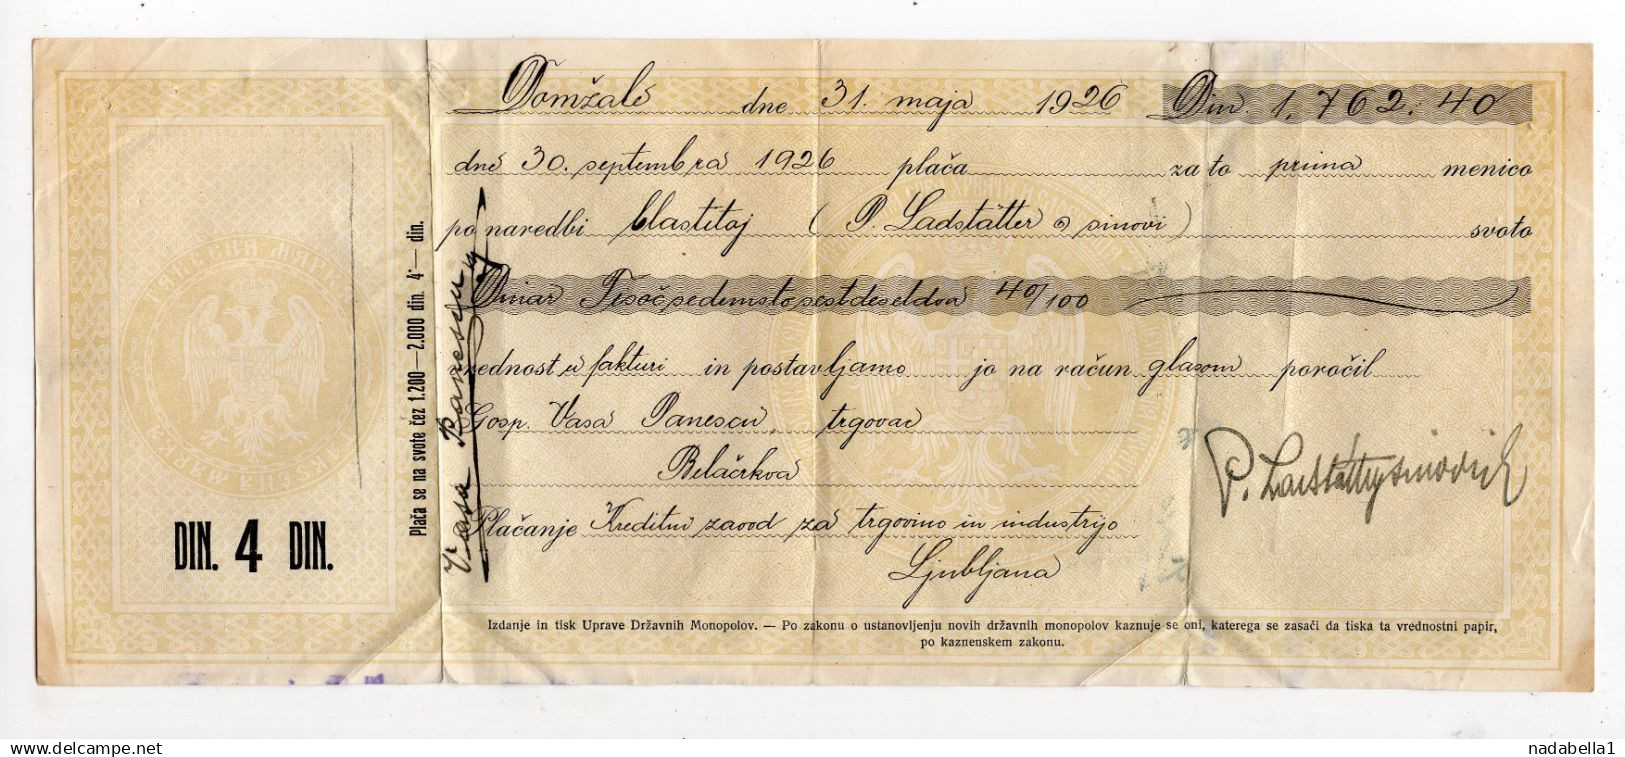 Domžale dne 31. maja 1926 Din 1.762.40
dne 30. septembra 1926 plača za to prima menico
po naredbi vlastitoj ( P. Ladstätter & sinovi ) svoto
Dinar Tisočsedemstošestdesetdva 40/100
vrednost u fakturi in postavljamo jo na račun glasom poročil
Gosp. Vasa Panescu, trgovac
Belačrkva
Plačanje Kreditni zavod za trgovino in industrijo
Ljubljana
P. Ladstätter & sinovi
Vasa Panescu
Plača se na svote čez 1.200—2.000 din. 4·— din.
DIN. 4 DIN.
Izdanje in tisk Uprave Državnih Monopolov. — Po zakonu o ustanovljenju novih državnih monopolov kaznuje se oni, katerega se zasači da tiska ta vrednostni papir,
po kaznenskem zakonu.
www.delcampe.net
nadabella1